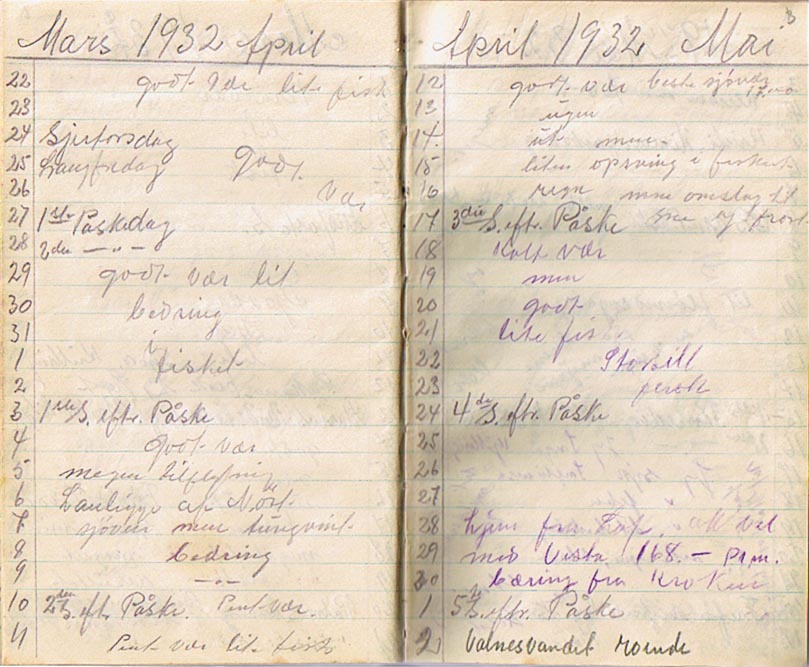 Mars 1932 April
22 godt vær lite fisk
23
24 Skjertorsdag
25 Langfredag godt
26 vær
27 1ste Påskedag
28 2den — " —
29 godt vær lit
30 bedring
31 i
1 fisket
2
3 1ste S. eftr. Påske
4 godt vær
5 megen tilflytning
6 Landligge af Nort
7 sjøveir men tungvint
8 bedring
9 — " —
10 2den S. eft. Påske. Pent vær.
11 Pent vær lit fisk
3
April 1932 Mai
12 godt vær beste sjøvær
13 ugen
14. ut men
15 liten opsving i fisket
16 regn men omslag til
17 3die S. eftr. Påske sne og frost
18 kalt vær
19 men
20 godt
21 lite fisk
22 Storsill
23 fersk
24 4de S. eftr. Påske
25
26
27
28 hjem fra alt vel
29 med Vesta 168.— prm.
30 fra
1 5te S. eftr. Påske
2 Valnesvandet roende